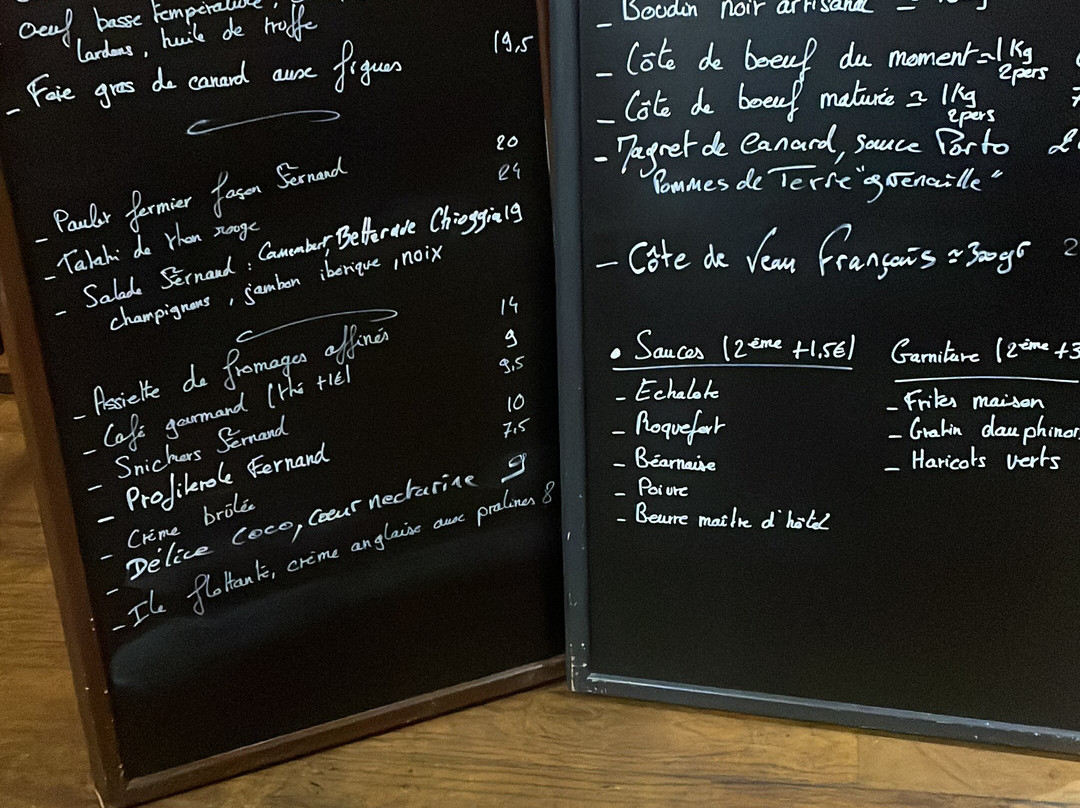 oeuf basse température,
lardons, huile de truffe
- Foie gras de canard aux figues 19,5
- Poulet fermier façon Fernand 20
- Tataki de thon rouge 24
- Salade Fernand : Camembert, Betterave Chioggia 19
champignons, jambon ibérique, noix
- Assiette de fromages affinés 14
- Café gourmand (thé +1€) 9
- Snickers Fernand 9,5
- Profiterole Fernand 10
- Crème brûlée 7,5
- Délice coco, coeur nectarine 9
- Ile flottante, crème anglaise aux pralines 8
- Boudin noir artisanal
- Côte de boeuf du moment ≃ 1 kg
2pers
- Côte de boeuf maturée ≃ 1kg
2pers
- Magret de Canard, sauce Porto
Pommes de Terre "grenaille"
- Côte de Veau Français ≃ 300gr
• Sauces (2ème +1,5€)
- Echalote
- Roquefort
- Béarnaise
- Poivre
- Beurre maître d'hôtel
Garniture (2ème +3
- Frites maison
- Gratin dauphinois
- Haricots verts